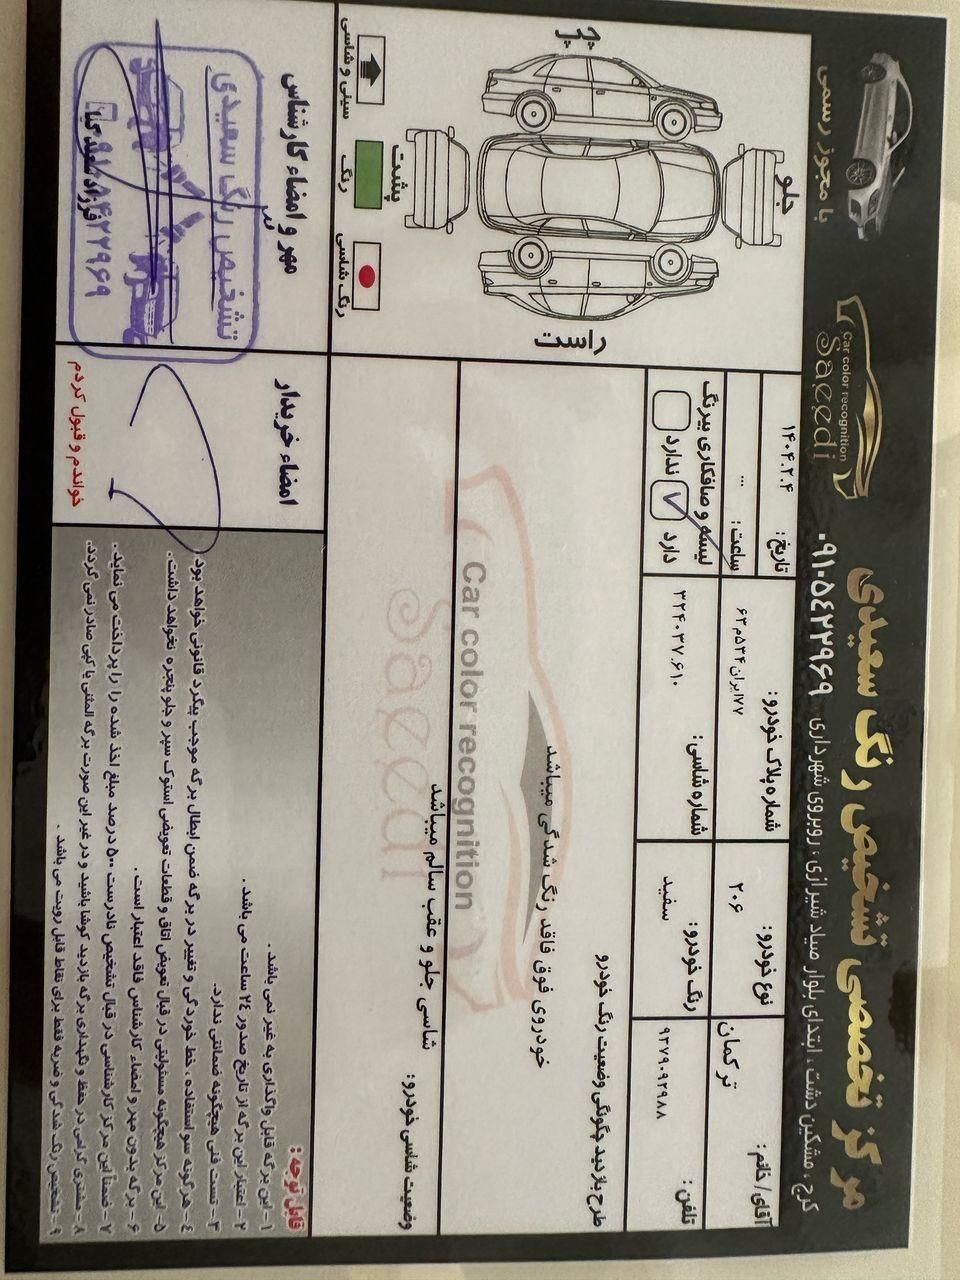 با مجوز رسمی
Car color recognition
Saeedi
مرکز تخصصی تشخیص رنگ سعیدی
کرج ، مشکین دشت ، ابتدای بلوار صیاد شیرازی ، روبروی شهرداری
۰۹۱۰۵۴۲۲۹۶۹
آقای/ خانم: ترکمان
نوع خودرو: ۲۰۶
شماره پلاک خودرو: ۷۷ایران۵۳۴م۶۳
تاریخ: ۱۴۰۴.۲.۴
ساعت: ...
تلفن: ۹۳۷۹۰۹۲۹۸۸
رنگ خودرو: سفید
شماره شاسی: ۳۲۴۰۳۷.۶۱۰
لیسه و صافکاری بیرنگ
دارد ✓ ندارد
طرح بازدید چگونگی وضعیت رنگ خودرو
خودروی فوق فاقد رنگ شدگی میباشد
وضعیت شاسی خودرو:
شاسی جلو و عقب سالم میباشد
Car color recognition
Saeedi
جلو
چپ
راست
پشت
سینی و شاسی
رنگ
رنگ شاسی
قابل توجه :
۱ - این برگه قابل واگذاری به غیر نمی باشد .
۲ - اعتبار این برگه از تاریخ صدور ۲۴ ساعت می باشد .
۳ - تست فنی هیچگونه ضمانتی ندارد.
۴ - هرگونه سو استفاده ، خط خوردگی و تغییر در برگه ضمن ابطال برگه موجب پیگرد قانونی خواهد بود
۵ - این مرکز هیچگونه مسئولیتی در قبال تعویض اتاق و قطعات تعویضی استوک سپر و جلو پنجره نخواهد داشت.
۶ - برگه بدون مهر و امضاء کارشناس فاقد اعتبار است .
۷ - ضمناً این مرکز کارشناسی در قبال تشخیص نادرست ۵۰ درصد مبلغ اخذ شده را پرداخت می نماید .
۸ - مشتری گرامی در حفظ و نگهداری برگه بازدید کوشا باشید و در غیر این صورت برگه المثنی یا کپی صادر نمی گردد.
۹ - تشخیص رنگ شدگی و ضربه فقط برای نقاط قابل رویت می باشد .
امضاء خریدار
خواندم و قبول کردم
مهر و امضاء کارشناس
تشخیص رنگ سعیدی